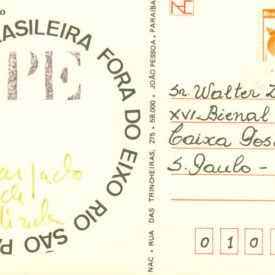 BRASILEIRA FORA DO EIXO RIO SÃO PA
PE
NAC - RUA DAS TRINCHEIRAS, 275 - 58.000 - JOÃO PESSOA - PARAÍBA
Bras
Sr. Walter Z
XVI-Bienal
Caixa Pos
S. Paulo -
0 1 0